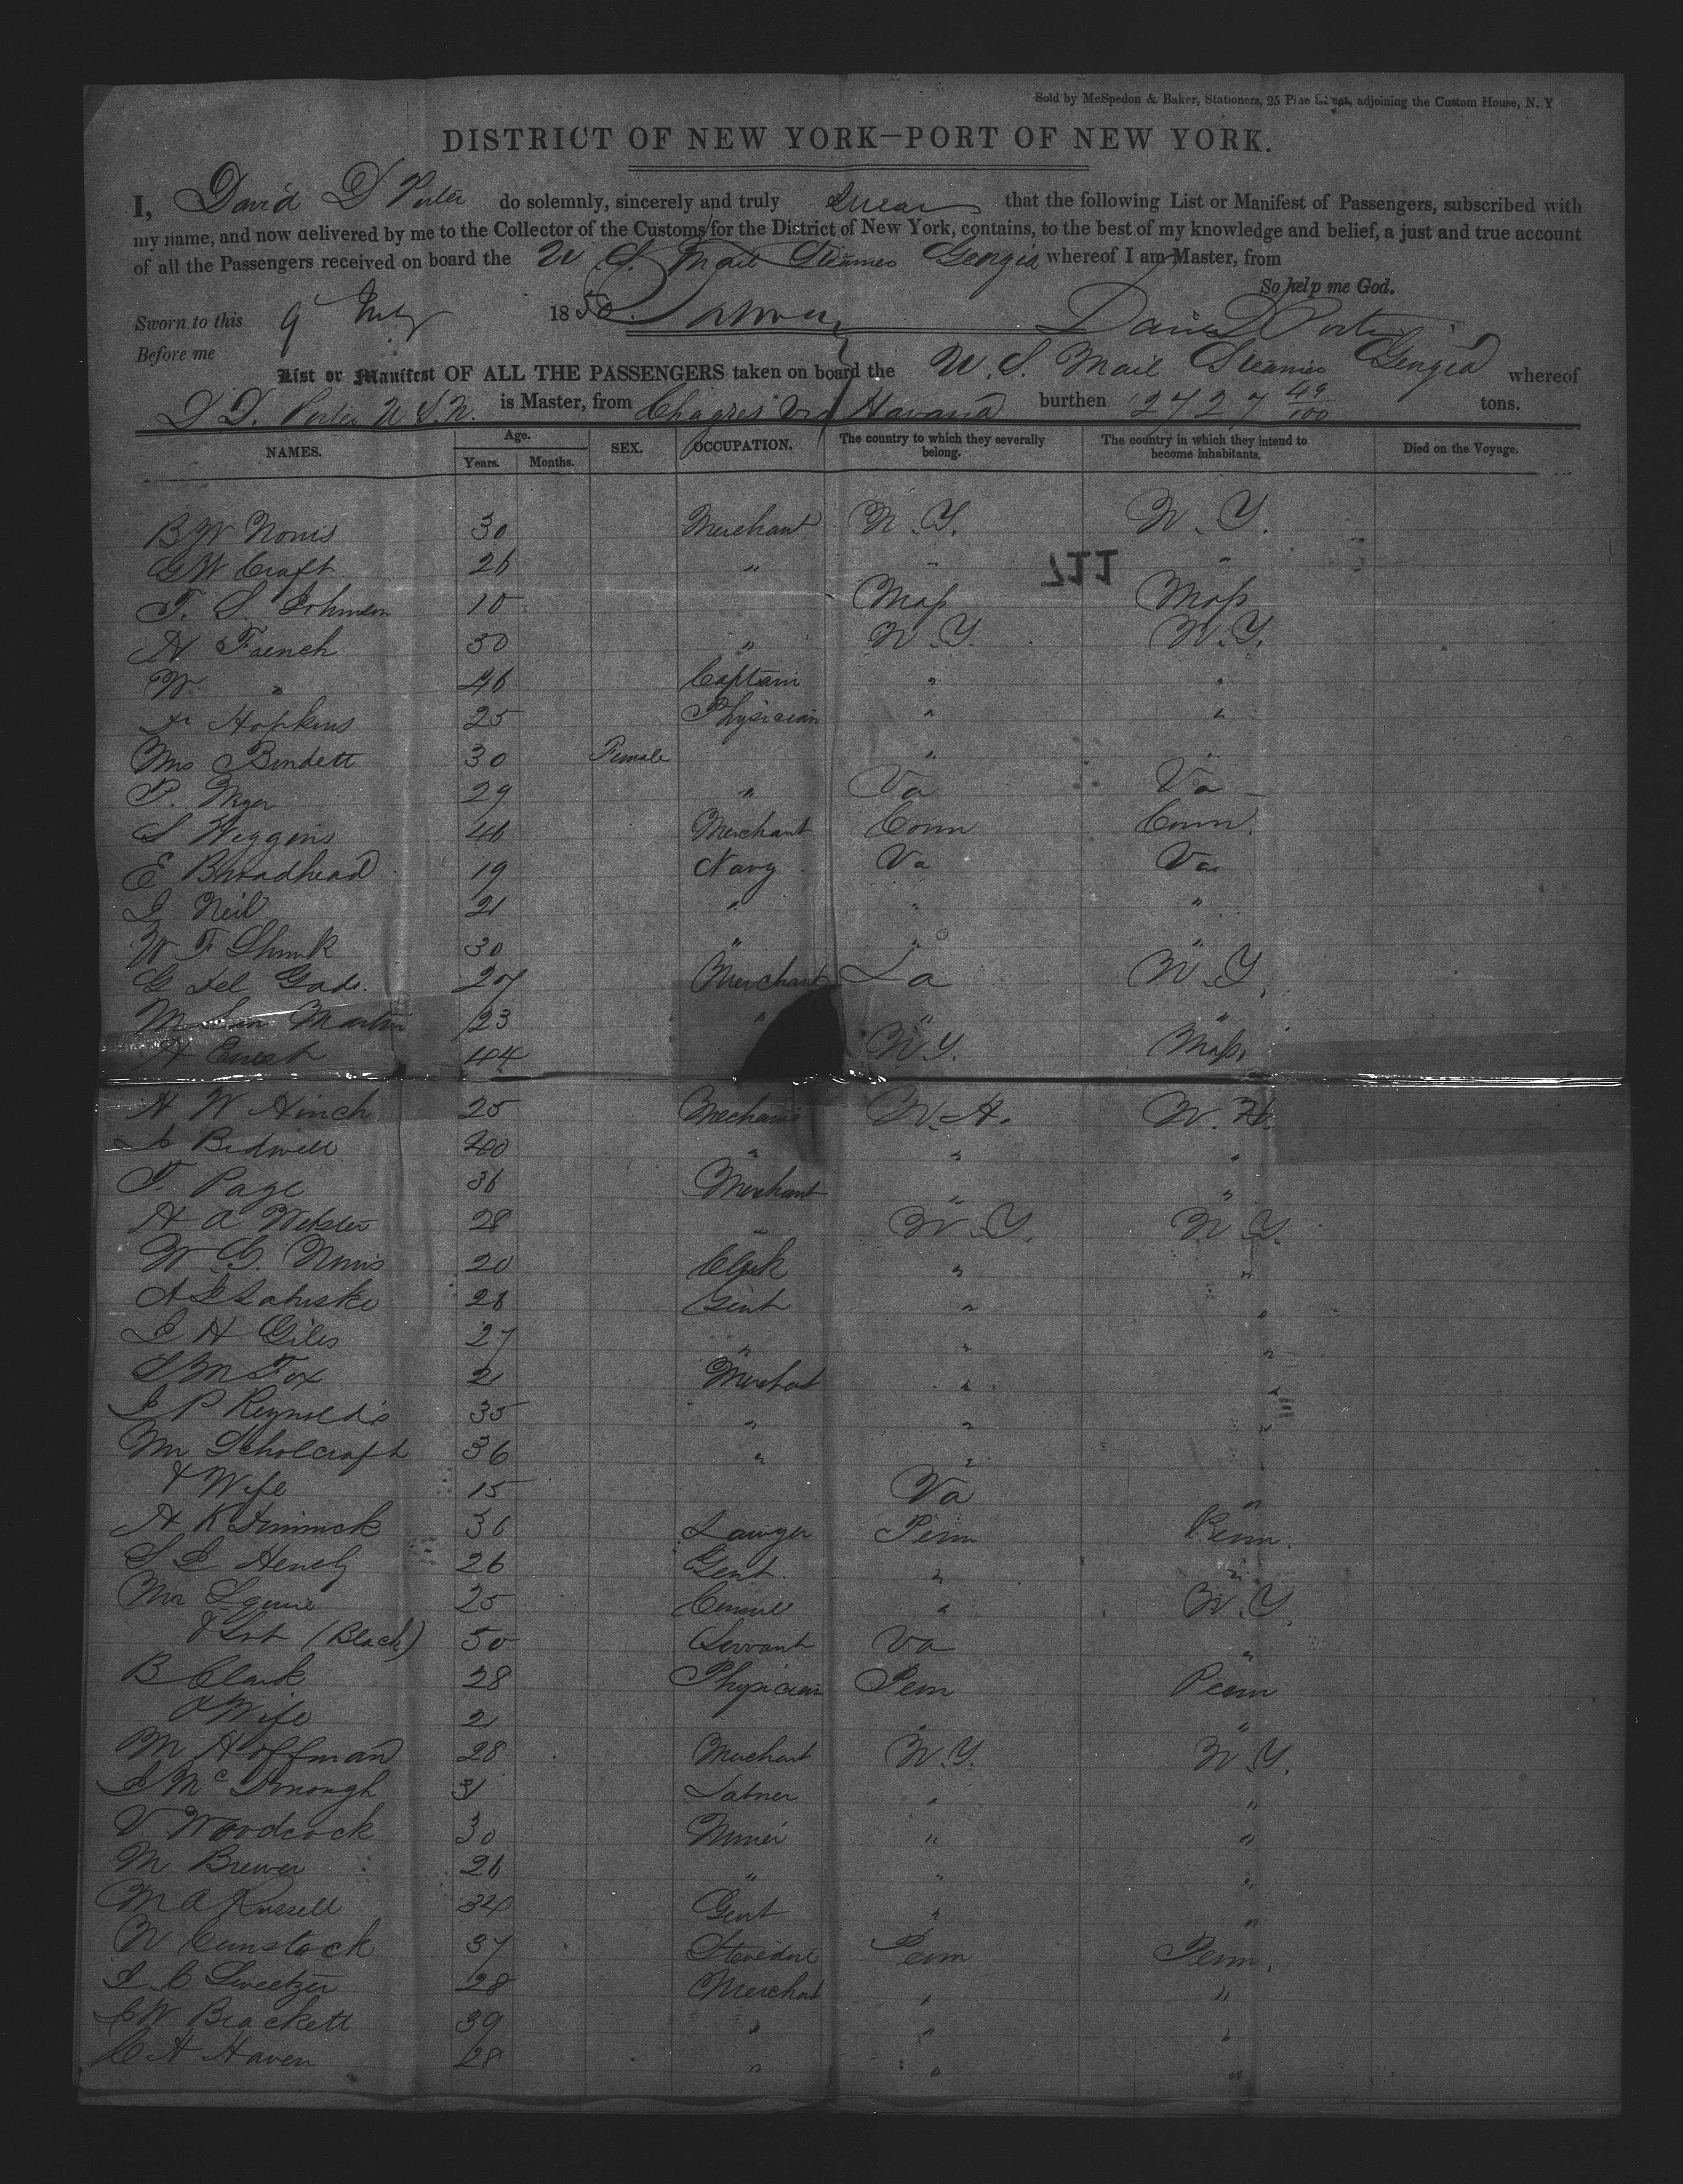 Sold by McSpedon & Baker, Stationers, 25 Pine Street, adjoining the Custom House, N. Y
DISTRICT OF NEW YORK—PORT OF NEW YORK.
I, David D Porter do solemnly, sincerely and truly swear that the following List or Manifest of Passengers, subscribed with
my name, and now delivered by me to the Collector of the Customs for the District of New York, contains, to the best of my knowledge and belief, a just and true account
of all the Passengers received on board the U. S. Mail Steamer Georgia whereof I am Master, from
So help me God.
Sworn to this 9 July 1850. David D Porter
Before me
List or Manifest OF ALL THE PASSENGERS taken on board the U. S. Mail Steamer Georgia whereof
D D. Porter U S. N. is Master, from Chagres via Havana burthen 2727 49/100 tons.
NAMES. Age. Years. Months. SEX. OCCUPATION. The country to which they severally belong. The country in which they intend to become inhabitants. Died on the Voyage.
B W Norris 30 Merchant N. Y. N. Y.
G W Craft 26 " " "
711
T. S. Johnson 10 Mass Mass
H French 30 " N. Y. N. Y.
W " 46 Captain " "
Dr Hopkins 25 Physician " "
Mrs Burdett 30 Female " "
P. 29 " Va Va
S Wiggins 46 Merchant Conn Conn.
E Broadhead 19 Navy Va Va
J Neil 21 " " "
W F Shunk 30 " " "
G del Gado. 27 Merchant La N. Y.
M San Martin 23 " " "
H Ernest 44 N. Y. Mass.
H W Hinch 25 Mechanic N. H. N. H.
Bidwell 40 " " "
T. Page 36 Merchant " "
H A Webster 28 " N. Y. N. Y.
W G. Norris 20 Clerk " "
A 28 Gent " "
J H Giles 27 " " "
S M Fox 21 Merchant " "
J P Reynolds 35 " " "
Mr Scholcraft 36 " "
& Wife 15 Va "
H K Dimmick 36 Lawyer Penn Penn.
S J Henely 26 Gent. " "
Mr Squire 25 Consul " N. Y.
& Svt (Black) 50 Servant Va "
B Clark 28 Physician Penn Penn
& Wife 21 " "
M Hoffman 28 Merchant N. Y. N. Y.
J McDonough 31 Laborer " "
V Woodcock 30 Miner " "
M Brewer 26 " " "
M A Russell 34 Gent " "
W Comstock 37 Stevedore Penn Penn.
J. C. Sweetzer 28 Merchant " "
C W Brackett 39 " " "
C H Haven 28 " " "